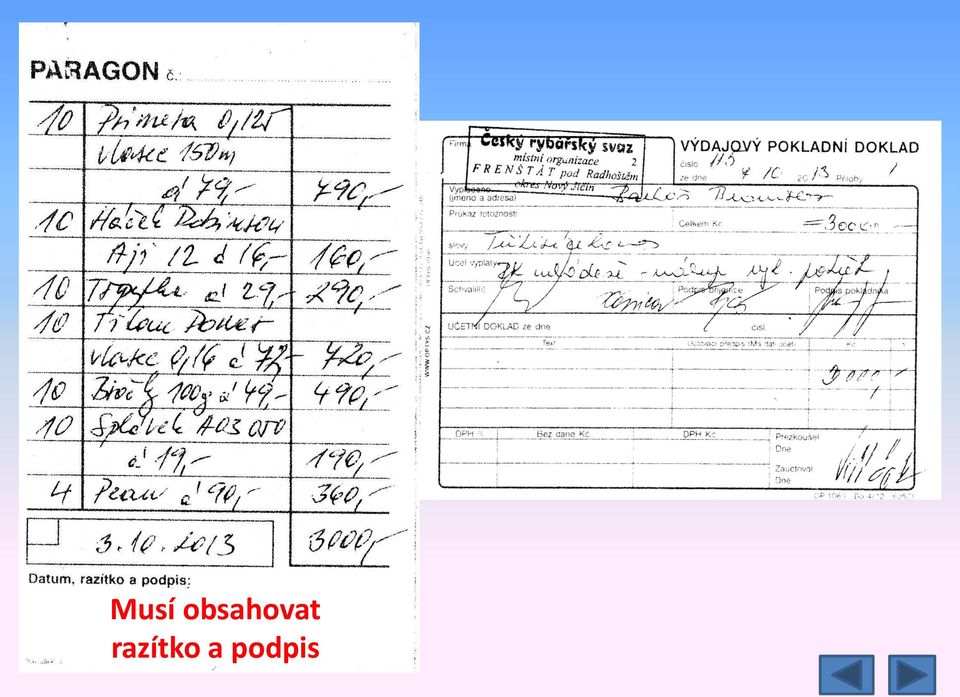 PARAGON č.:
10 Primeta 0,125
vlasec 150m
á 79,- 790,-
10 Háček Robinson
Aji 12 á 16,- 160,-
10 á 29,- 290,-
10 Titan Power
vlasec 0,16 á 72,- 720,-
10 Broky 100g á 49,- 490,-
10 Splávek A03 050
á 19,- 190,-
4 Pean á 90,- 360,-
3.10.2013 3000,-
Datum, razítko a podpis:
Musí obsahovat
razítko a podpis
WWW.OPTYS.CZ
Firma Český rybářský svaz
místní organizace 2
FRENŠTÁT pod Radhoštěm
okres Nový Jičín
VÝDAJOVÝ POKLADNÍ DOKLAD
číslo 113
ze dne 7 10 2013 Přílohy 1
Vyplaceno
(jméno a adresa)
Průkaz totožnosti
Celkem Kč =3000,-
slovy Třitisíce
Účel výplaty mládeže - nákup
Schválil Podpis příjemce Podpis pokladníka
ÚČETNÍ DOKLAD ze dne čísl.
Text Účtovací předpis (Má dáti účet) Kč
3000,-
DPH % Bez daně Kč DPH Kč
Přezkoušel
Dne
Zaúčtoval
Dne